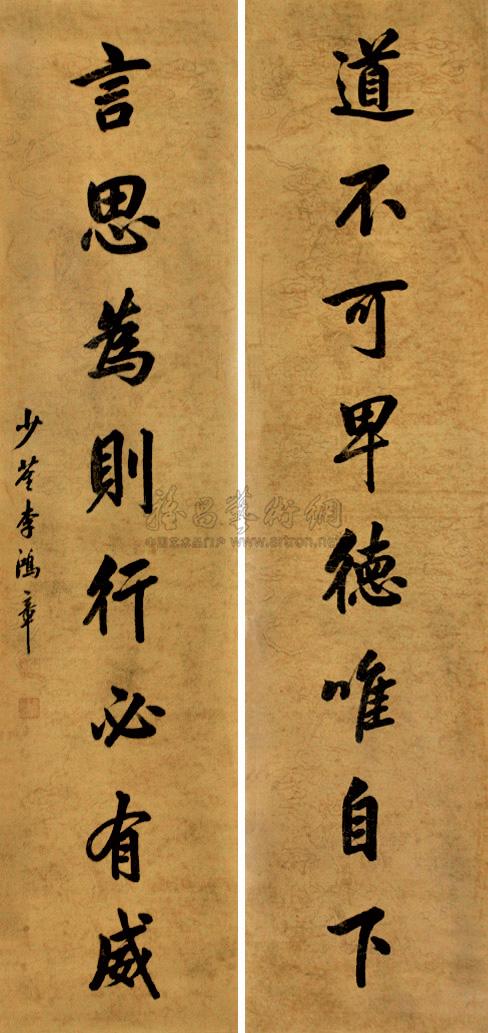 道不可卑德唯自下
言思為則行必有威
少荃李鴻章
雅昌藝術網
中国艺术品门户 www.artron.net